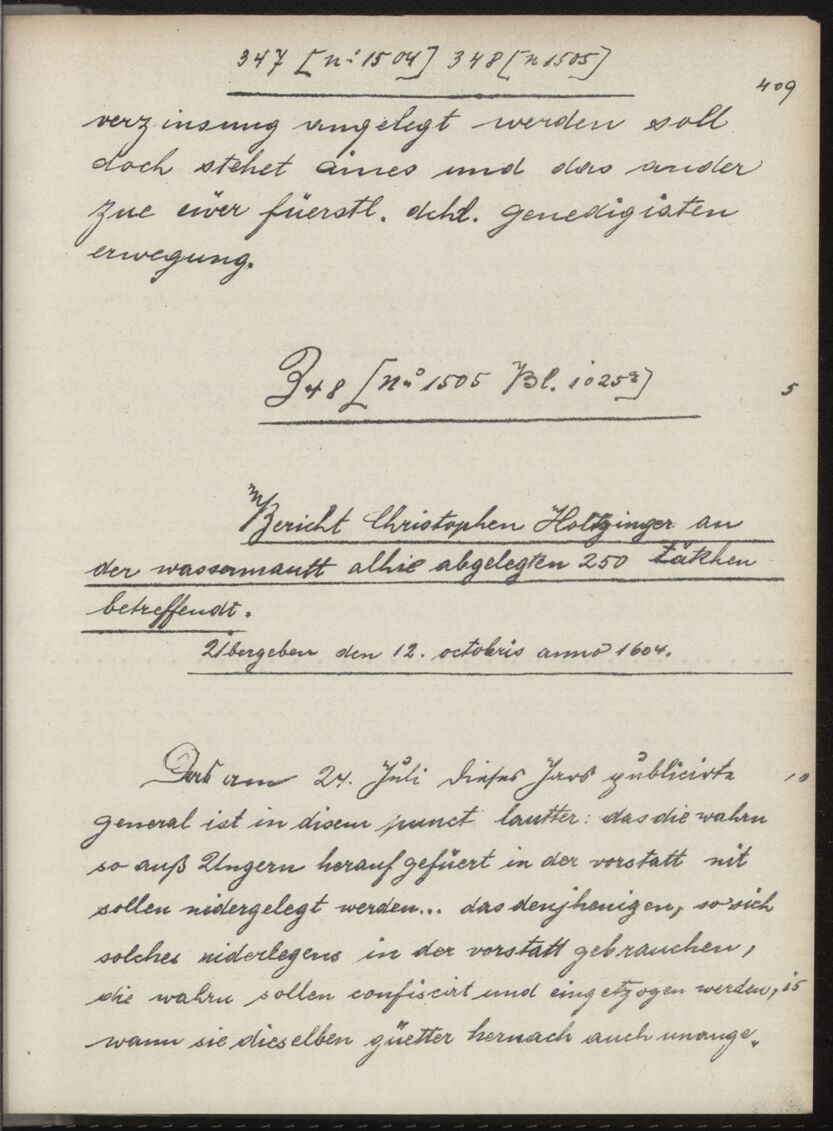 347 [nº 1504] 348 [n 1505]
409
verzinsung angelegt werden soll
doch stehet aines und das ander
zue eüer füerstl. dchl. genedigisten
erwegung.
348 [nº 1505 Bl. 1025ª]
5
Bericht Christophen Holtzinger an
der wassermautt alhie abgelegten 250 täkhen
betreffendt.
Übergeben den 12. octobris anno 1604.
Das am 24. Juli dieses Jars publicirte
10
general ist in disem punct lautter: das die wahrn
so auß Ungern herauf gefüert in der vorstatt nit
sollen nidergelegt werden... das denjhenigen, so sich
solches niderlegens in der vorstatt gebrauchen,
die wahrn sollen confiscirt und eingetzogen werden,
15
wann sie dieselben güetter hernach auch unange„